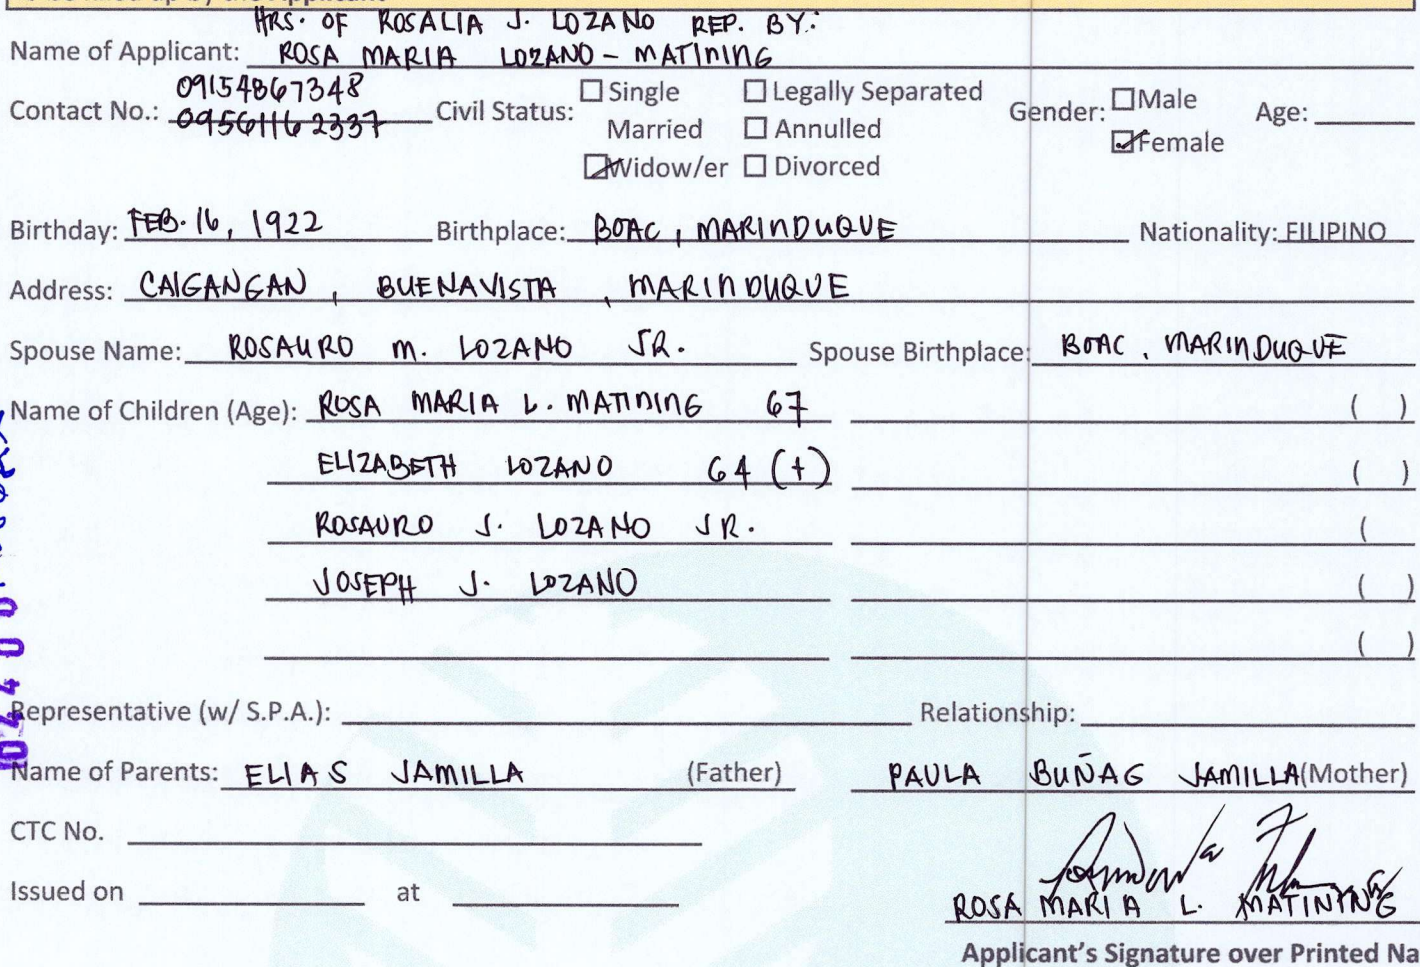 HRS. OF ROSALIA J. LOZANO REP. BY:
Name of Applicant: ROSA MARIA LOZANO - MATINING
09154867348
Contact No.: 09561162337 Civil Status: Single Legally Separated Gender: Male Age:
Married Annulled Female
Widow/er Divorced
Birthday: FEB. 16, 1922 Birthplace: BOAC, MARINDUQUE Nationality: FILIPINO
Address: CAIGANGAN, BUENAVISTA, MARINDUQUE
Spouse Name: ROSAURO M. LOZANO SR. Spouse Birthplace: BOAC, MARINDUQUE
Name of Children (Age): ROSA MARIA L. MATINING 67 ( )
ELIZABETH LOZANO 64 (+) ( )
ROSAURO J. LOZANO JR. (
JOSEPH J. LOZANO ( )
( )
Representative (w/ S.P.A.): Relationship:
Name of Parents: ELIAS JAMILLA (Father) PAULA BUÑAG JAMILLA (Mother)
CTC No.
Issued on at
ROSA MARIA L. MATINING
Applicant's Signature over Printed Na